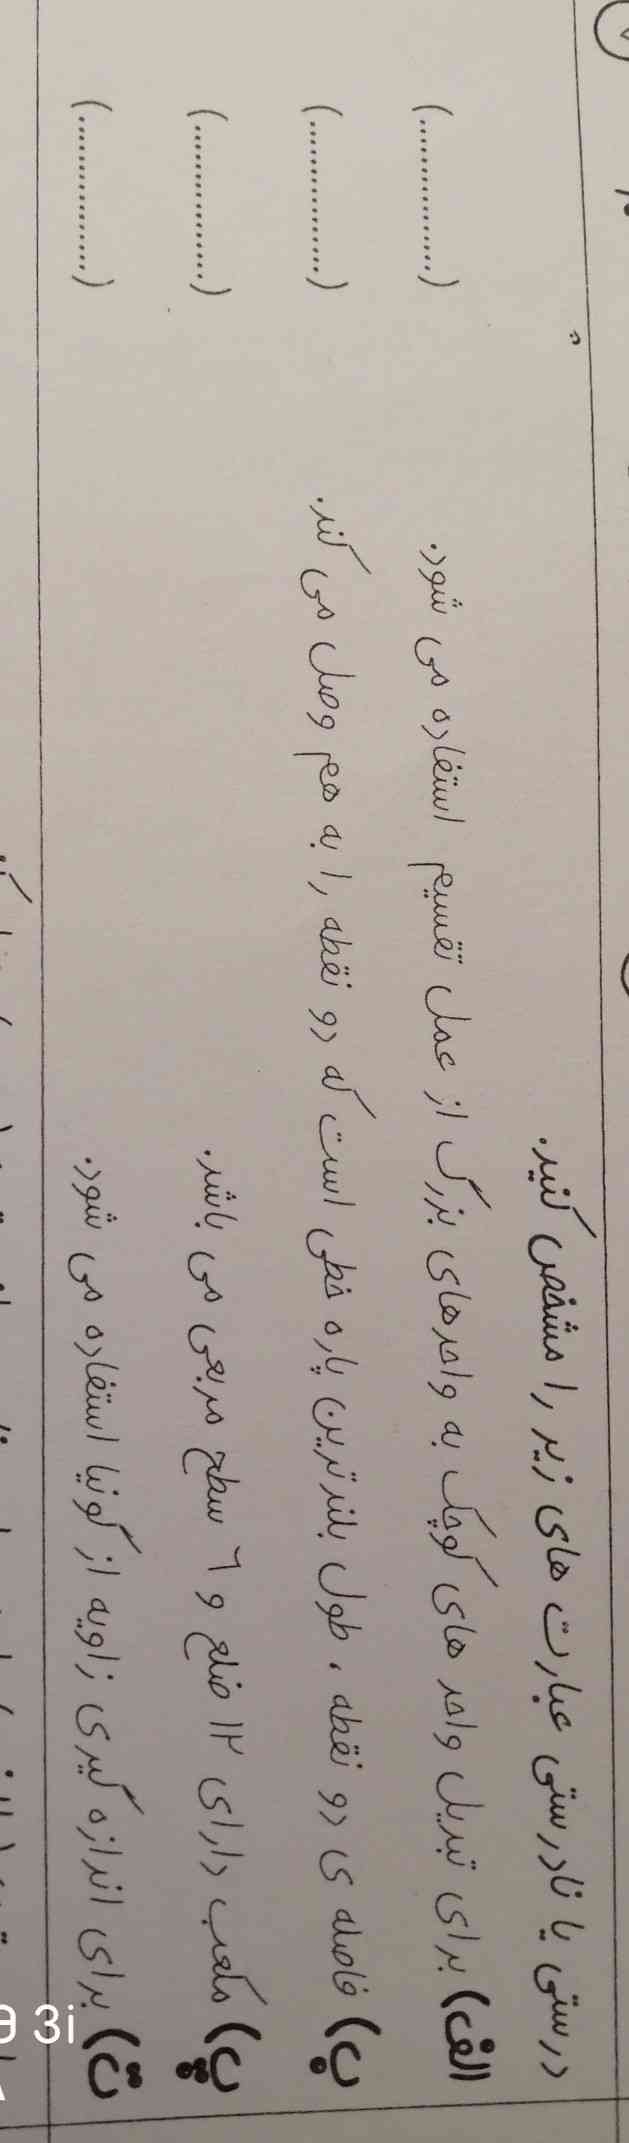 درستی یا نادرستی عبارت های زیر را مشخص کنید.
الف) برای تبدیل واحد های کوچک به واحدهای بزرگ از عمل تقسیم استفاده می شود. (................)
ب) فاصله ی دو نقطه ، طول بلندترین پاره خطی است که دو نقطه را به هم وصل می کند. (................)
پ) مکعب دارای ۱۲ ضلع و ٦ سطح مربعی می باشد. (................)
ت) برای اندازه گیری زاویه از گونیا استفاده می شود. (................)
3i